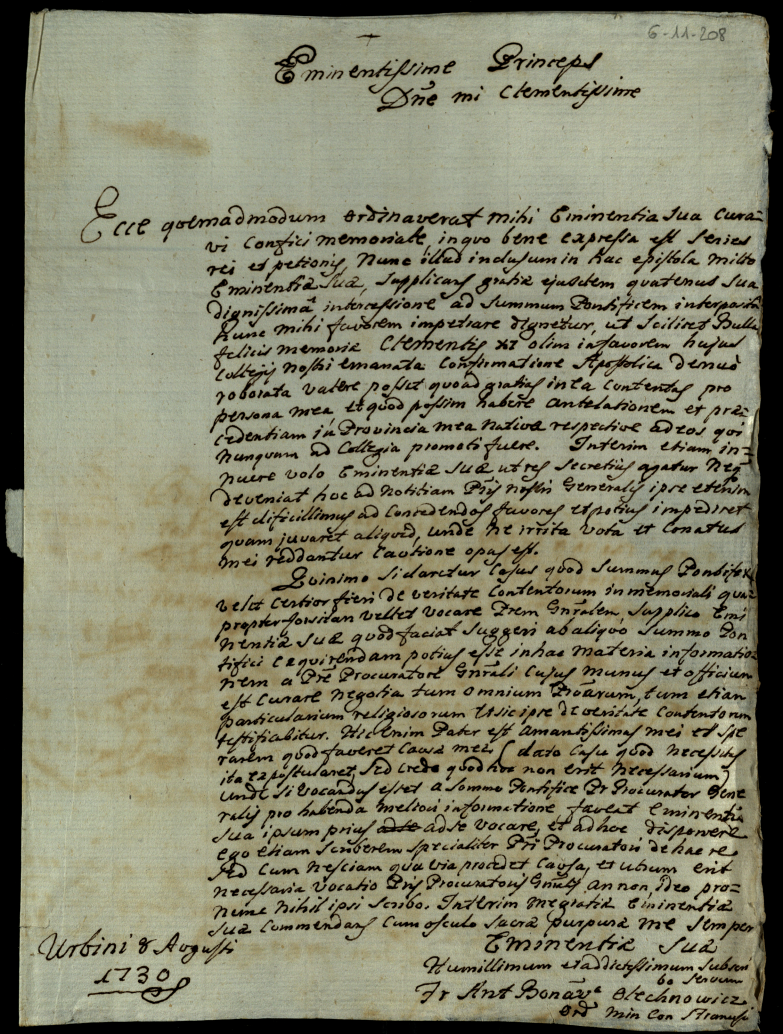 6-11-208
Eminentissime Princeps
Dne mi Clementissime
Ecce qoemadmodum ordinaverat mihi Eminentia Sua Cura-
vi Confici memoriale, in quo bene expressa est Series
rei et petionis, Nunc illud inclusum in hac epistola mitto
Eminentiæ Suæ, Supplicans gratia ejusdem quatenus Sua
dignissima intercessione ad Summum Pontificem interposita
hunc mihi favorem impetrare dignetur, ut Scilicet Bulla
felicis memoriæ Clementis XI olim in favorem hujus
Collegij nostri emanata Confirmatione Apostolica denuò
roborata valere posset quoad gratias in ea Contentas pro
persona mea et quod possim habere antelationem et præ-
cedentiam in Provincia mea Nativa respective ad eos qui
Nunquam ad Collegia promoti fuere. Interim etiam in-
nuere volo Eminentiæ Suæ ut res Secretius agatur Neq
deveniat hoc ad Notitiam Pris Nostri Generalis ipse etenim
est dificillimus ad Concedendos favores et potius impediret
quam juvaret aliquid, unde Ne irrita vota et Conatus
mei reddantur Cautione opus est.
Quinimo Si daretur Casus quod Summus Pontifex
velit Certior fieri de veritate Contentorum in memoriali qua
propter forsitan vellet vocare Prem Gnralem, Supplico Emi
nentiæ Suæ quod faciat Suggeri ab aliquo Summo Pon
tifici exquirendam potius esse in hac materia informatio
nem a Pre Procuratore Gnrali Cujus munus et officium
est Curare Negotia tum omnium Provarum, tum etiam
particularium religiosorum Usic ipse de veritate Contentorum
testificabitur. Hic enim Pater est amantissimus mei et Spe
rarem quod faveret Causæ meæ (dato Casu quod Necessitas
ita expostularet, Sed Credo quod hoc non erit Necessarium)
Unde Si vocandus esset a Sommo Pontifice Pr Procurator Gene
ralis pro habenda meliori informatione faveat Eminentia
Sua ipsum prius ad se vocare, et ad hoc disponere
ego etiam Scriberem Specialiter Pri Procuratori de hac re
Sed Cum Nesciam qua via procedet Causa, et utrum erit
Necessaria vocatio Pris Procuratoris Gnralis an non, ideo pro-
nunc Nihil ipsi Scribo. Interim me gratiæ Eminentiæ
Suæ Commendans Cum osculo Sacræ purpuræ me Semper
Eminentiæ Suæ
Urbini 8 Augusti
1730
Humillimum et addictissimum Subscri
bo Servum
Fr Ant Bonave Olechnowicz
Ord Min Con